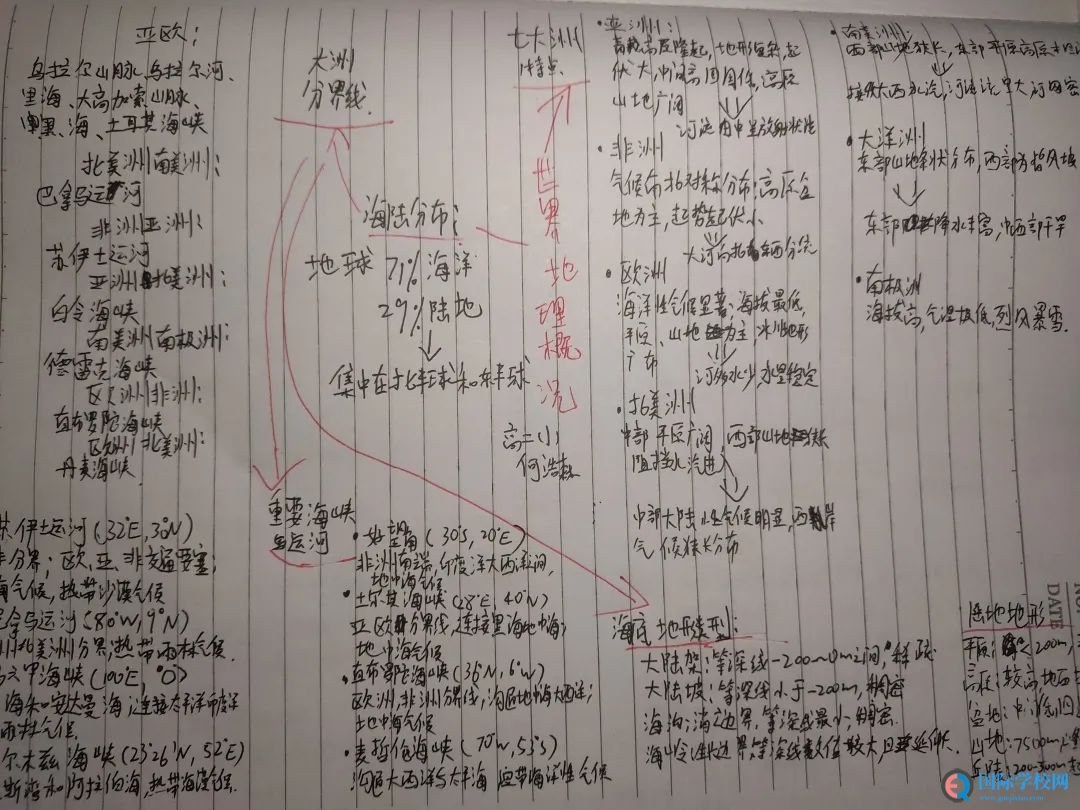 亚欧:
乌拉尔山脉、乌拉尔河、
里海、大高加索山脉、
黑、海、土耳其海峡
北美洲南美洲:
巴拿马运河
非洲亚洲:
苏伊士运河
亚洲北美洲:
白令海峡
南美洲南极洲:
德雷克海峡
欧洲非洲:
直布罗陀海峡
欧洲北美洲:
丹麦海峡
大洲
分界线
七大洲
特点
世界地理概况
海陆分布:
地球 71%海洋
29%陆地
集中在北半球和东半球
高二
何浩
·亚洲:
高原高原隆起,地形复杂,起
伏大,中间高四周低,高原
山地广阔
河流由中呈放射状流
·非洲
气候南北对称分布,高原台
地为主,起伏小
大河
·欧洲
海洋性气候显著、海拔最低,
平原、山地为主,冰川地形
广布
河多水少,水量稳定
·北美洲
中部平原广阔 西部山地
阻挡水汽进入
中部大陆性气候明显,西岸
气候狭长分布
·南美洲:
西部山地狭长,东部平原高原
接纳大西洋水汽,河流流量大河网密
·大洋洲
东部山地条状分布,西部为背风坡
东部降水丰富,中西部干旱
·南极洲
海拔高,气温极低,烈风暴雪.
重要海峡
与运河
苏伊士运河(32°E,30°N)
分界;欧、亚、非交通要塞;
气候,热带沙漠气候
拿马运河(80°W,9°N)
北美洲分界;热带雨林气候.
六甲海峡(100°E,0°)
海和安达曼海,连接太平洋印度洋
雨林气候.
尔木兹海峡(23°26′N,52°E)
斯湾和阿拉伯海,热带沙漠气候.
·好望角(30°S,20°E)
非洲南端,印度洋大西洋间,
地中海气候
·土尔其海峡(28°E,40°N)
亚欧分界线,连接黑海地中海;
地中海气候
·直布罗陀海峡(36°N,6°W)
欧洲,非洲分界线,沟通地中海大西洋;
地中海气候
·麦哲伦海峡(70°W,53°S)
沟通大西洋与太平海 温带海洋性气候
海底地形类型:
大陆架:等深线-200~0m之间,稀疏
大陆坡:等深线小于-200m,稠密
海沟:消亡边界,等深线最小,稠密.
海岭:生长边界,等深线数值较大,且延伸长.
陆地地形
平原:200m,
高原:较高地面
盆地:中低,四
山地:>500m
丘陵:200-500m
DATE
国际学校网